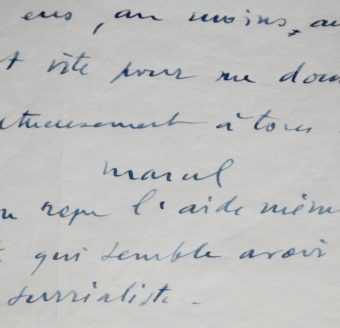 ens, au moins, au
t vite pour me don
ctueusement à tous
Marcel
u reçu l'aide mém
qui semble avoi
surrialiste -